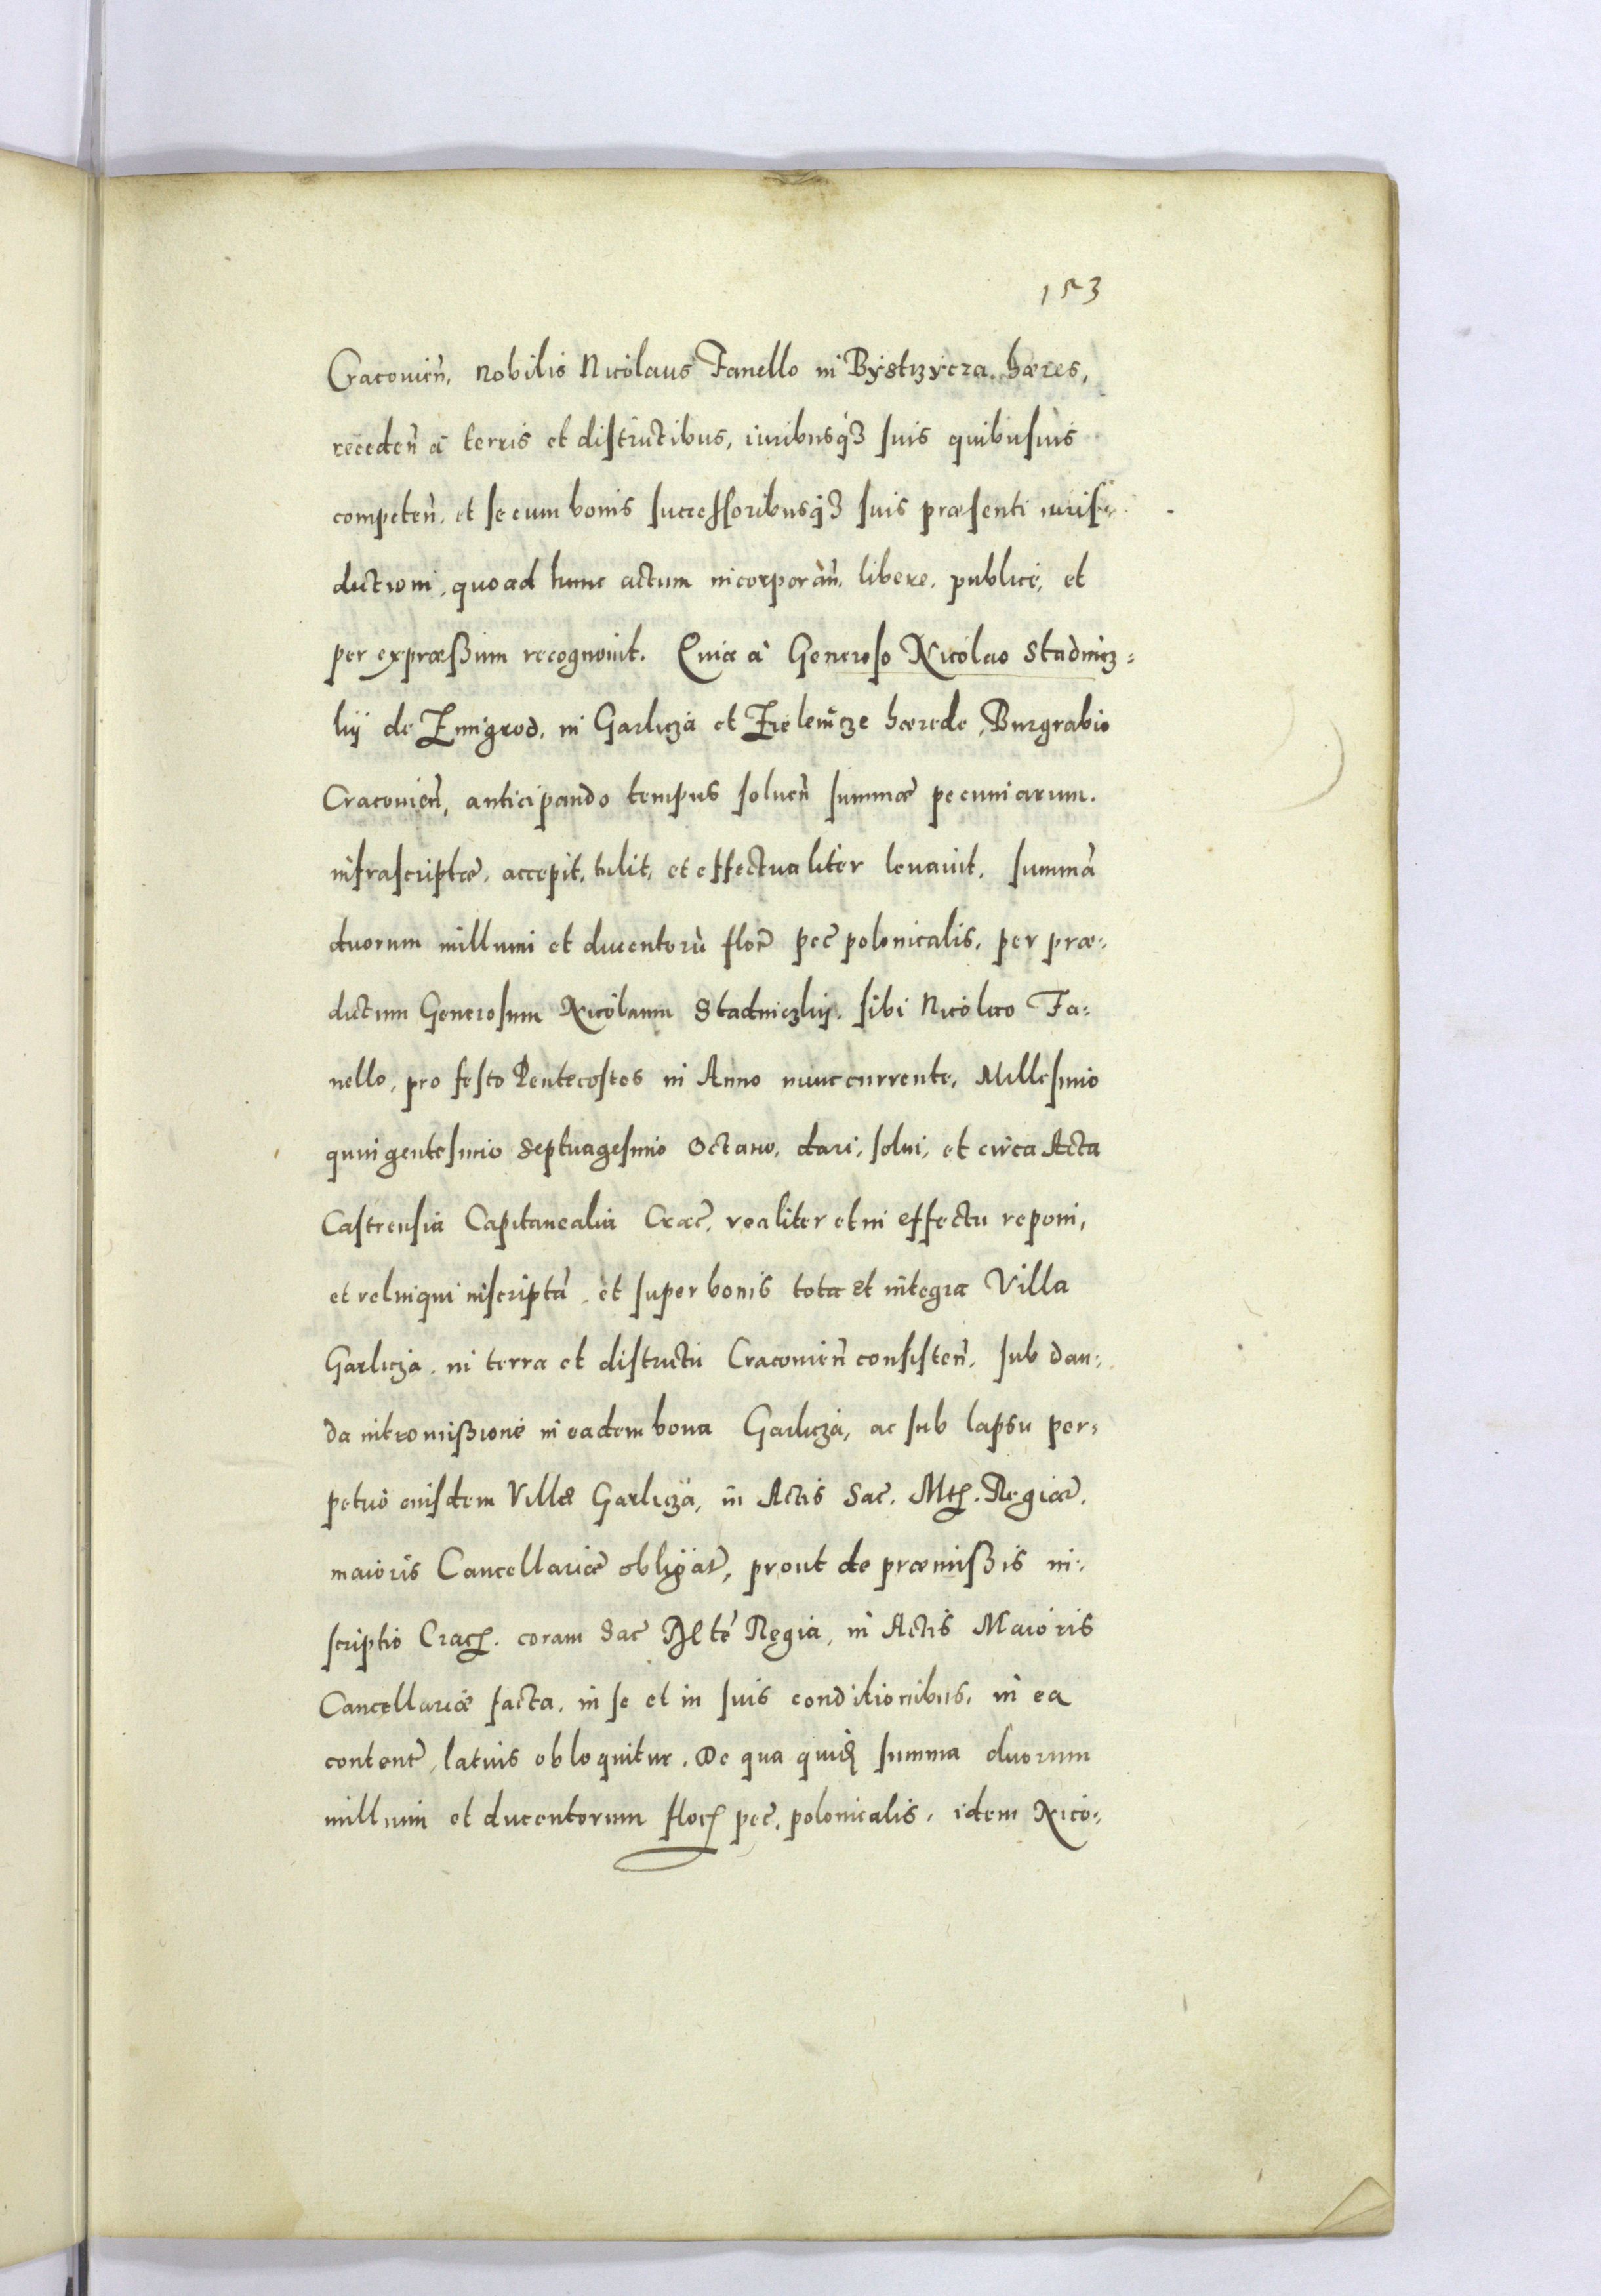 153
Cracovien̄, nobilis Nicolaus Fanello in Bystrzycza hæres,
receden̄ à terris et districtibus, iuribusq̧ȝ suis quibusuis
competen̄. et se cum bonis successoribusq̧ȝ suis præsenti iuris-
dictioni, quo ad hunc actum incorporan̄. libere, publicè, et
per expræßum recognouit. Quia à Generoso Nicolao Stadnicz=
kij de Zmigrod, in Garlicza et Zielenicze hærede, Burgrabio
Cracovien̄, anticipando tempus soluen̄ summæ pecuniarum.
infrascriptæ, accepit, tulit, et effectualiter leuauit. summā
duorum millium et ducentorū flor̄ pec̄ polonicalis, per præ-
dictum Generosum Nicolaum Stadniczkij, sibi Nicolao Fa-
nello, pro festo Pentecostes in Anno nunc currente, Millesimo
quingentesimo Septuagesimo Octauo, dari, solui, et circa Acta
Castrensia Capitanealia Crac̄, realiter et in effectu reponi,
et relinqui inscriptā, et super bonis tota et integra Villa
Garlicza. in terra et districtu Cracovien̄ consisten̄, sub dan-
da intromißione in eadem bona Garlicza, ac sub lapsu per-
petuo eiusdem Villæ Garlicza, in Actis Sac̄. Mtꝭ. Regiæ,
maioris Cancellariæ obligat̄, prout de præmißis in-
scriptio Cracꝭ. coram Sac̄ Mte Regia, in Actis Maioris
Cancellariæ facta, in se et in suis conditionibus, in ea
content̄, latius obloquitur. De qua quid̄ summa duorum
millium et ducentorum florꝭ pec̄, polonicalis, idem Nico-